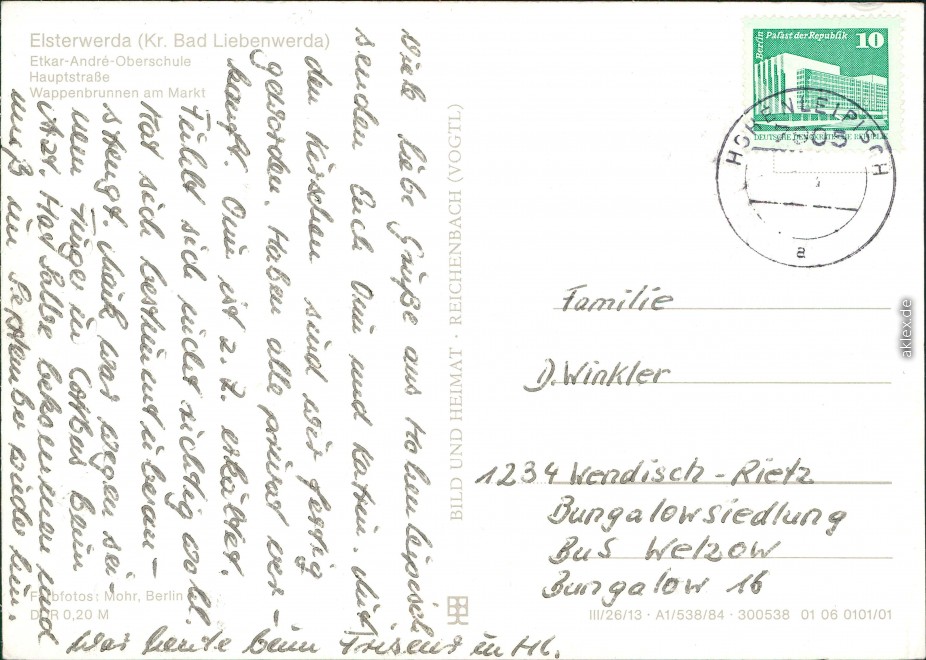 Elsterwerda (Kr. Bad Liebenwerda)
Etkar-André-Oberschule
Hauptstraße
Wappenbrunnen am Markt
Viele liebe Grüße aus Hohenleipisch
senden Euch Omi und Katrin. Mit
den Kirschen sind wir fertig
geworden. Haben alle prima ver-
kauft. Omi ist z. Z. erkältet.
Fühlt sich nicht richtig wohl.
Hat sich bestimmt überan-
strengt. Maik war wegen sei-
nem Finger in Cottbus beim
Arzt. Hat Salbe bekommen und
muß im September wieder hin.
War heute beim Friseur in Hl.
BILD UND HEIMAT · REICHENBACH (VOGTL)
Farbfotos: Mohr, Berlin
DDR 0,20 M
Berlin Palast der Republik
10
DEUTSCHE DEMOKRATISCHE REPUBLIK
HOHENLEIPISCH
a
Familie
D. Winkler
1234 Wendisch-Rietz
Bungalowsiedlung
BuS Welzow
Bungalow 16
III/26/13 · A1/538/84 · 300538 01 06 0101/01
aklex.de